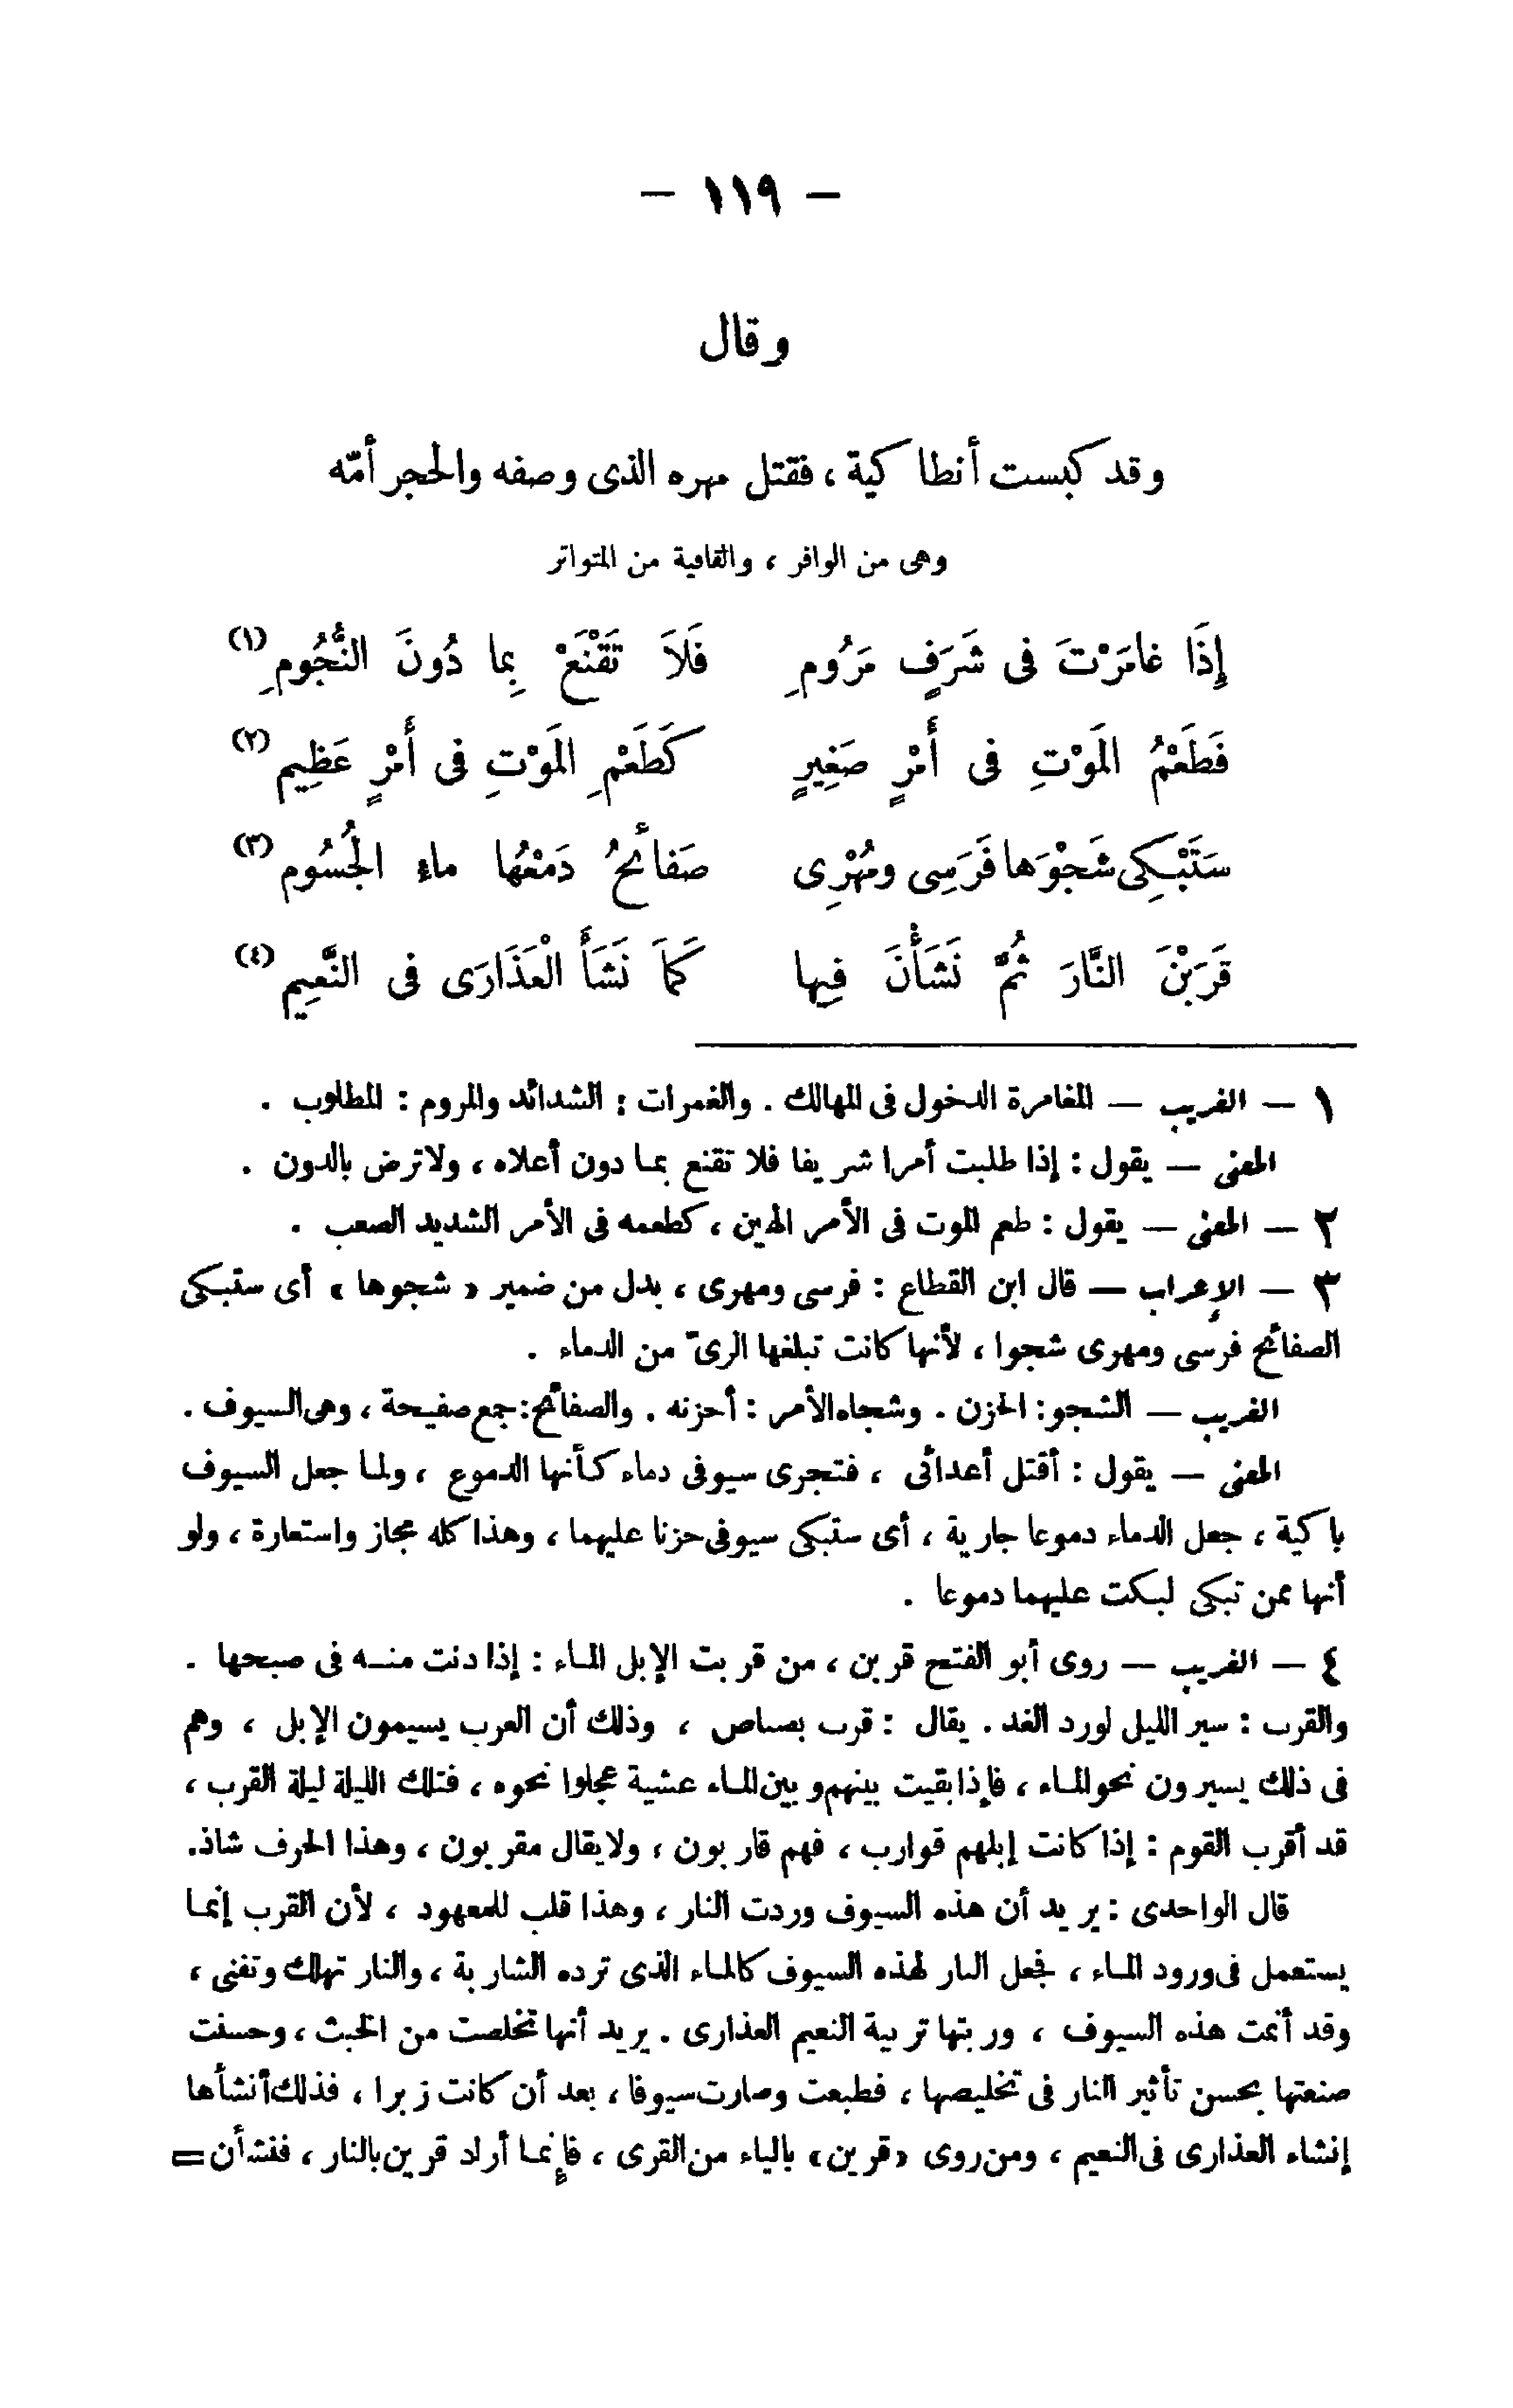 — ١١٩ —
وقال
وقد كبست أنطاكية ، فقتل مهره الذى وصفه والحجر أمّه
وهى من الوافر ، والقافية من المتواتر
إِذَا غامَرْتَ فى شَرَفٍ مَرُومِ فَلَا تَقْنَعْ بِما دُونَ النُّجُومِ (١)
فَطَعْمُ المَوْتِ فى أَمْرٍ صَغِيرٍ كَطَعْمِ المَوْتِ فى أَمْرٍ عَظِيم (٢)
سَتَبْكِى شَجْوَها فَرَسِى ومُهْرِى صَفَائحُ دَمْعُها ماءِ الجُسُوم (٣)
قَرَبْنَ النَّارَ ثُمَّ نَشَأْنَ فِيها كَمَا نَشَأَ الْعَذَارَى فى النَّعِيم (٤)
١ — الغريب — المغامرة الدخول فى المهالك . والغمرات : الشدائد والمروم : المطلوب .
المعنى — يقول : إذا طلبت أمرا شريفا فلا تقنع بما دون أعلاه ، ولا ترض بالدون .
٢ — المعنى — يقول : طعم الموت فى الأمر الهين ، كطعمه فى الأمر الشديد الصعب .
٣ — الإعراب — قال ابن القطاع : فرسى ومهرى ، بدل من ضمير « شجوها » أى ستبكى
الصفائح فرسى ومهرى شجوا ، لأنها كانت تبلغها الرىّ من الدماء .
الغريب — الشجو : الحزن . وشجاه الأمر : أحزنه . والصفائح : جمع صفيحة ، وهى السيوف .
المعنى — يقول : أقتل أعدائى ، فتجرى سيوفى دماء كأنها الدموع ، ولما جعل السيوف
باكية ، جعل الدماء دموعا جارية ، أى ستبكى سيوفى حزنا عليهما ، وهذا كله مجاز واستعارة ، ولو
أنها ممن تبكى لبكت عليهما دموعا .
٤ — الغريب — روى أبو الفتح قربن ، من قربت الإبل الماء : إذا دنت منه فى صبحها .
والقرب : سير الليل لورد الغد . يقال : قرب بصباص ، وذلك أن العرب يسيمون الإبل ، وهم
فى ذلك يسيرون نحو الماء ، فإذا بقيت بينهم وبين الماء عشية عجلوا نحوه ، فتلك الليلة ليلة القرب ،
قد أقرب القوم : إذا كانت إبلهم قوارب ، فهم قاربون ، ولا يقال مقربون ، وهذا الحرف شاذ.
قال الواحدى : يريد أن هذه السيوف وردت النار ، وهذا قلب للمعهود ، لأن القرب إنما
يستعمل فى ورود الماء ، فجعل النار لهذه السيوف كالماء الذى ترده الشاربة ، والنار تهلك وتفنى ،
وقد أنمت هذه السيوف ، وربتها تربية النعيم العذارى . يريد أنها تخلصت من الخبث ، وحسنت
صنعتها بحسن تأثير النار فى تخليصها ، فطبعت وصارت سيوفا ، بعد أن كانت زبرا ، فذلك أنشأها
إنشاء العذارى فى النعيم ، ومن روى «قرين» بالياء من القرى ، فإنما أراد قرين بالنار ، فنشأن =